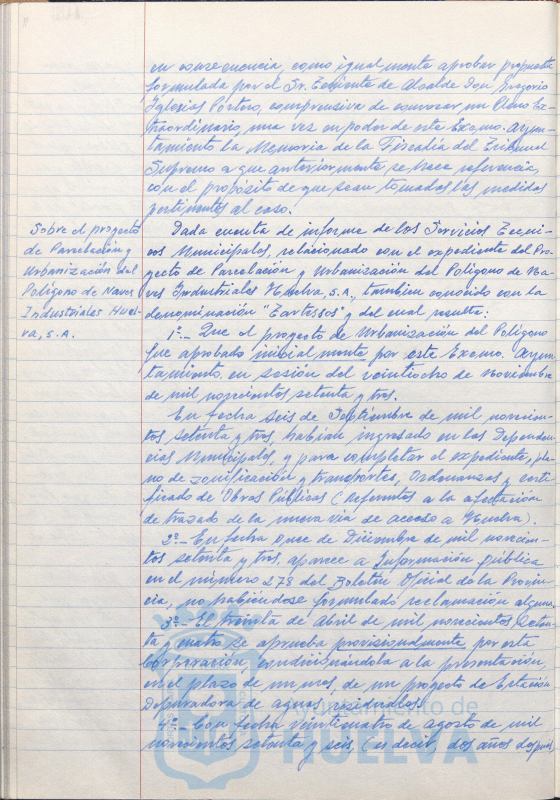 en consecuencia, como igualmente aprobar propuesta
formulada por el Sr. Teniente de Alcalde Don Gregorio
Iglesias Portero, comprensiva de convocar un Pleno Ex-
traordinario, una vez en poder de este Excmo. Ayun-
tamiento la Memoria de la Fiscalía del Tribunal
Supremo a que anteriormente se hace referencia,
con el propósito de que sean tomadas las medidas
pertinentes al caso.
Sobre el proyecto
de Parcelación y
Urbanización del
Polígono de Naves
Industriales Huel-
va, S.A.
Dada cuenta de informe de los Servicios Técni-
cos Municipales, relacionado con el expediente del Pro-
yecto de Parcelación y Urbanización del Polígono de Na-
ves Industriales Huelva, S.A., tambien conocido con la
denominación "Tartessos" y del cual resulta:
1º.- Que el proyecto de Urbanización del Polígono
fue aprobado inicialmente por este Excmo. Ayun-
tamiento en sesión del veintiocho de Noviembre
de mil novecientos setenta y tres.
En fecha seis de Septiembre de mil novecien-
tos setenta y tres, habían ingresado en las Dependen-
cias Municipales, y para completar el expediente, pla-
no de zonificación y transportes, Ordenanzas y certi-
ficado de Obras Públicas (referentes a la afectación
de trazado de la nueva vía de acceso a Huelva).
2º.- En fecha once de Diciembre de mil novecien-
tos setenta y tres, aparece a Información pública
en el número 278 del Boletín Oficial de la Provin-
cia, no habiéndose formulado reclamación alguna.
3º.- El treinta de Abril de mil novecientos seten-
ta y cuatro se aprueba provisionalmente por esta
Corporación, condicionándola a la presentación,
en el plazo de un mes, de un proyecto de Estación
Depuradora de aguas residuales.
4º.- Con fecha veinticuatro de agosto de mil
novecientos setenta y seis (es decir, dos años despues
Ayuntamiento de
HUELVA